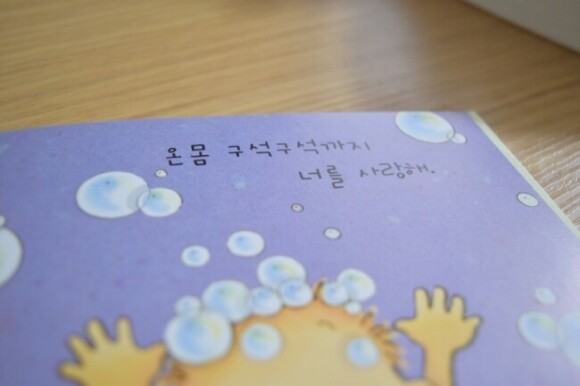 온몸 구석구석까지
너를 사랑해.